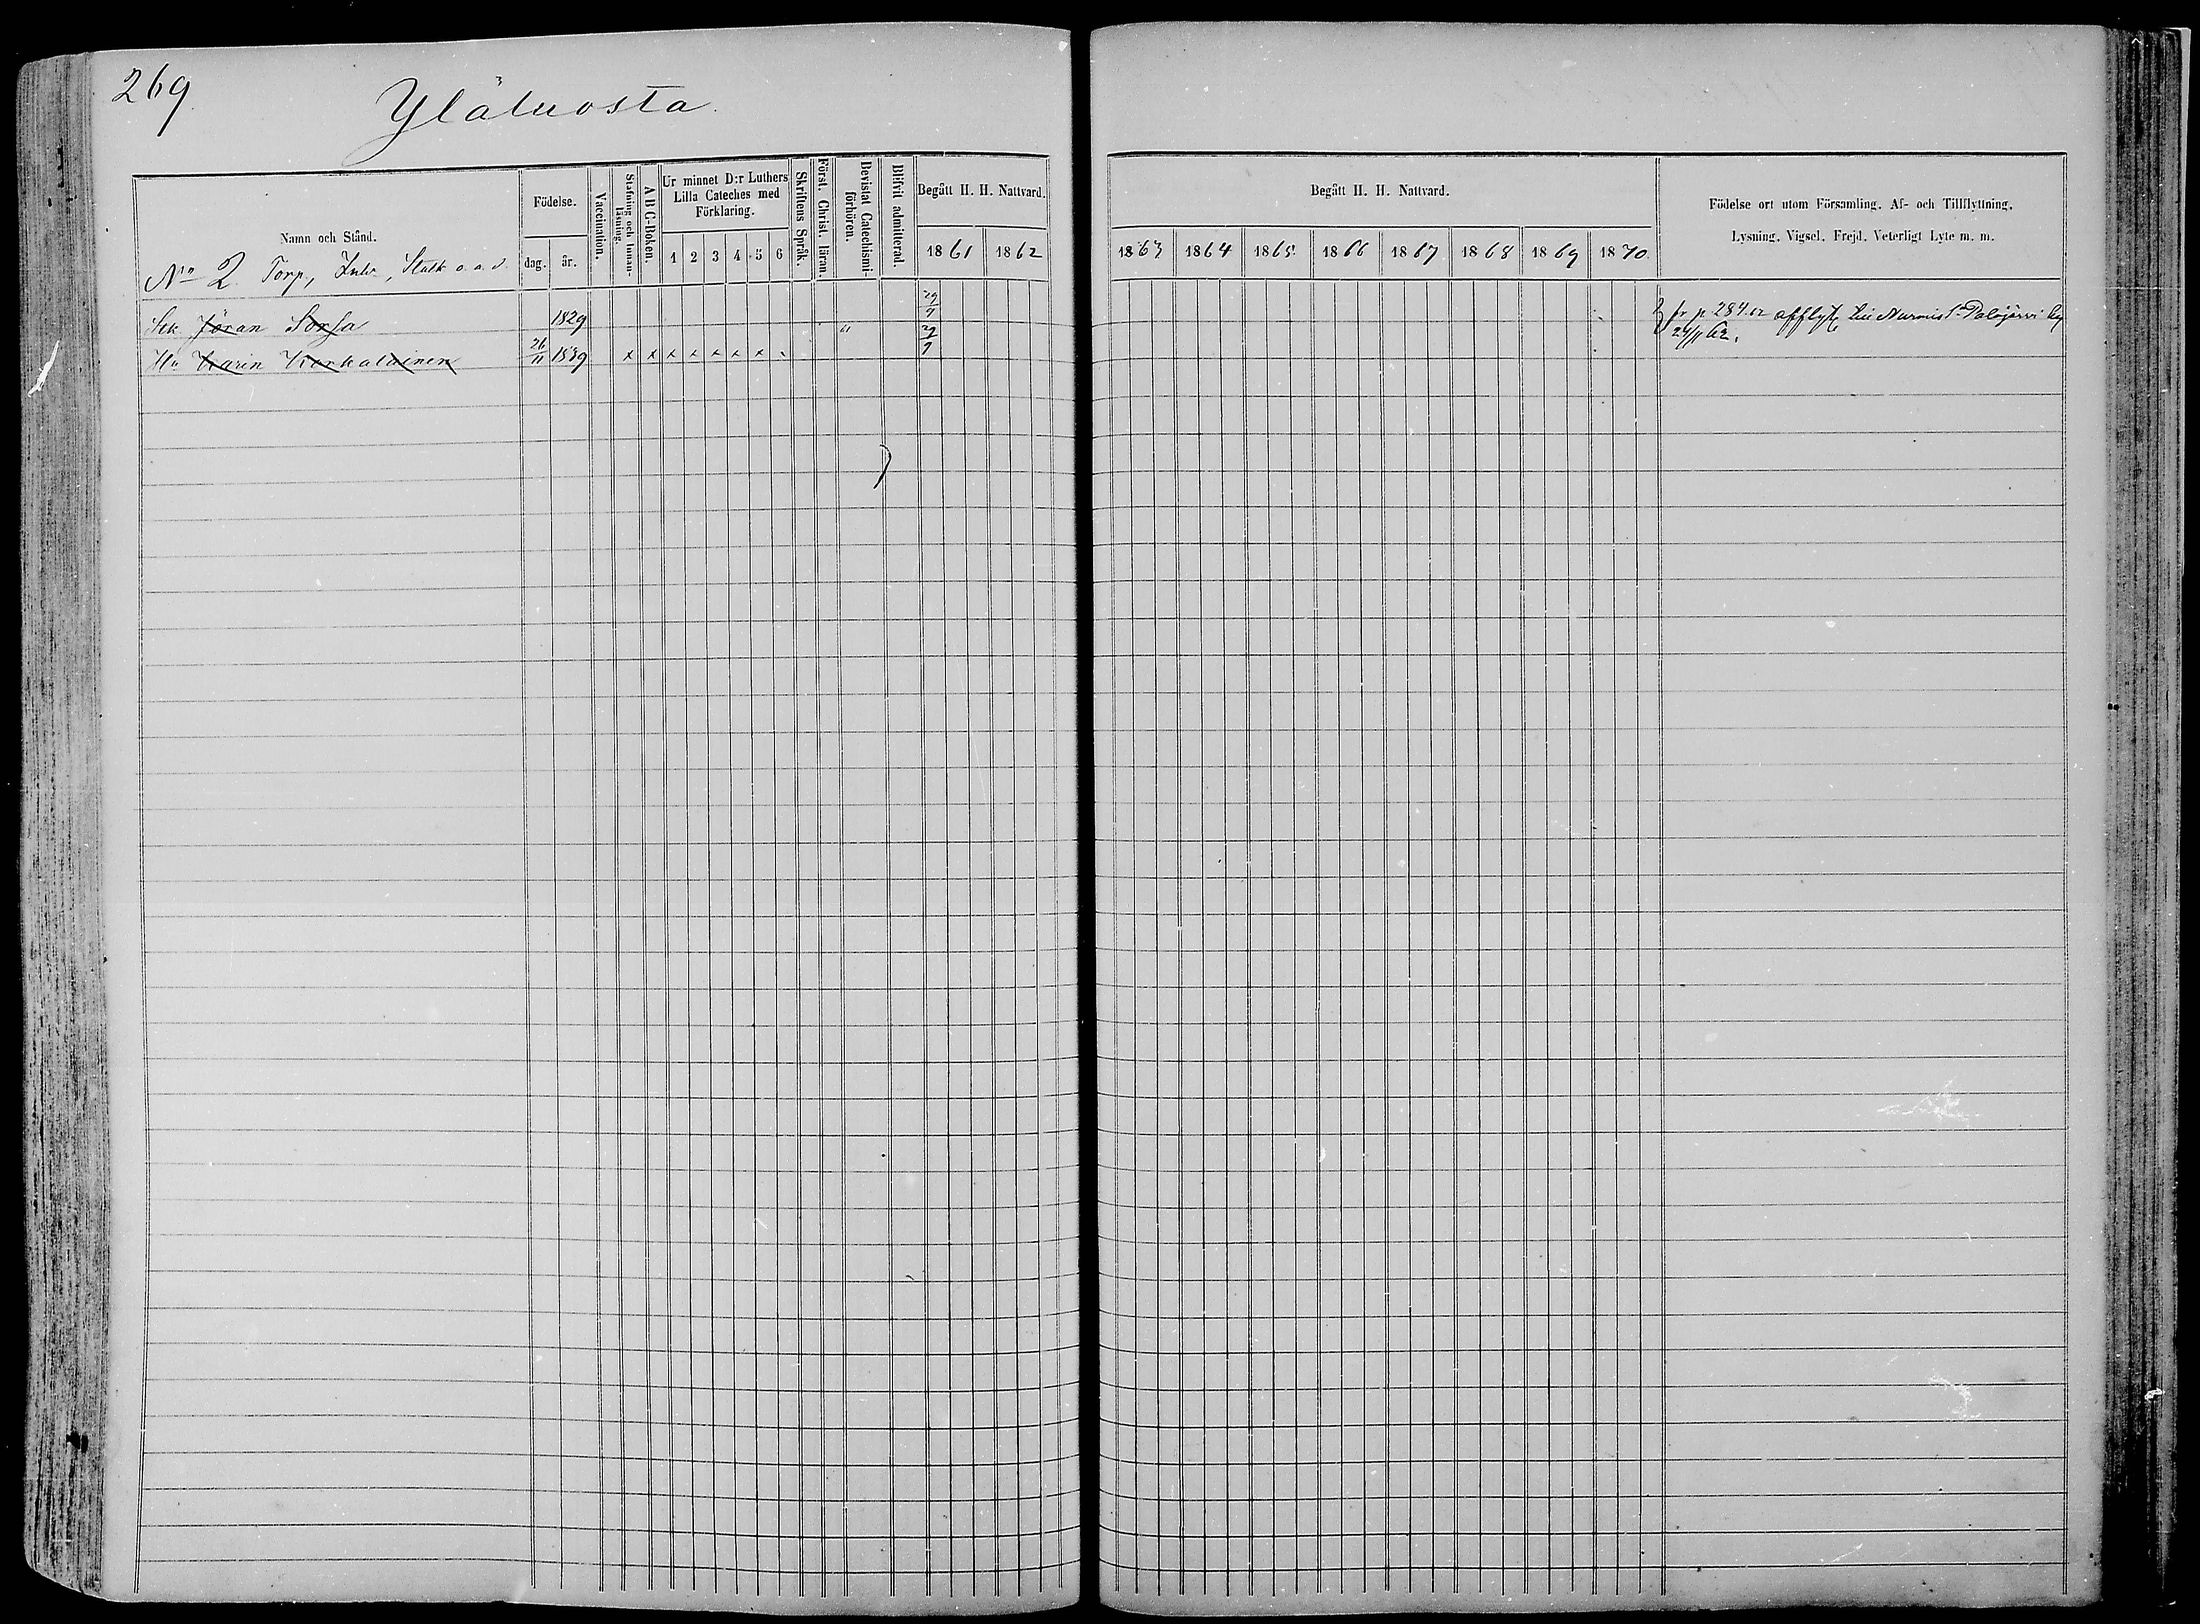 269.
Yläluosta
Namn och Stånd.
No 2. Torp., Inh., Statk o.a.d.
Födelse.
dag. år.
Vaccination.
Stafning och Innanläsning.
A B C-Boken.
Ur minnet D:r Luthers
Lilla Cateches med
Förklaring.
1 2 3 4 5 6
Skriftens Språk.
Först. Christ. läran.
Bevistat Catechismi-
förhören.
Blifvit admitterad.
Begått H. H. Nattvard.
1861 1862
Begått H. H. Nattvard.
1863 1864 1865. 1866 1867 1868 1869 1870.
Födelse ort utom Församling. Af- och Tillflyttning.
Lysning. Vigsel. Frejd. Veterligt Lyte m. m.
Stk Jöran Sorsa 1829 fr p 284. afflytt till Nurmis
Hu Karin Korkalainen 26/11 1839 x x x x x x x 61 24/11 62.